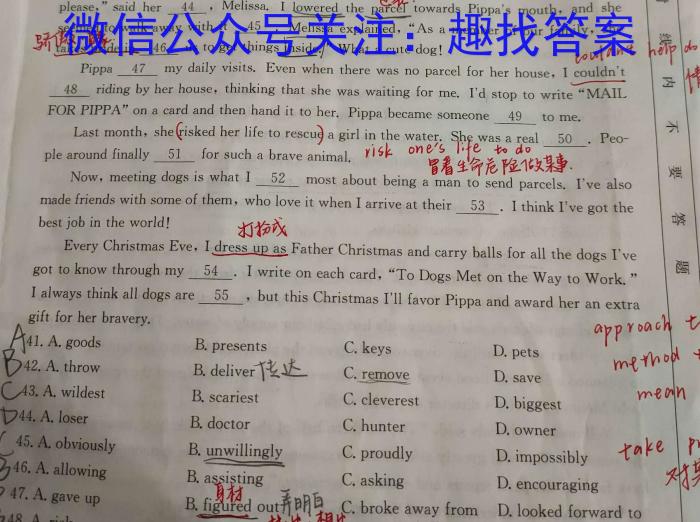 please," said her 44 , Melissa. I lowered the parcel towards Pippa's mouth, and she
walk away with it. 45 , Melissa explained, "As a
46 to get things inside." What a cute dog!
微信公众号关注：趣找答案
Pippa 47 my daily visits. Even when there was no parcel for her house, I couldn't
48 riding by her house, thinking that she was waiting for me. I'd stop to write "MAIL
FOR PIPPA" on a card and then hand it to her. Pippa became someone 49 to me.
Last month, she risked her life to rescue a girl in the water. She was a real 50 . Peo-
ple around finally 51 for such a brave animal.
risk one's life to do
冒着生命危险做某事.
Now, meeting dogs is what I 52 most about being a man to send parcels. I've also
made friends with some of them, who love it when I arrive at their 53 . I think I've got the
best job in the world!
打扮成
Every Christmas Eve, I dress up as Father Christmas and carry balls for all the dogs I've
got to know through my 54 . I write on each card, "To Dogs Met on the Way to Work."
I always think all dogs are 55 , but this Christmas I'll favor Pippa and award her an extra
gift for her bravery.
A 41. A. goods B. presents C. keys D. pets
B 42. A. throw B. deliver 传达 C. remove D. save
C 43. A. wildest B. scariest C. cleverest D. biggest
D 44. A. loser B. doctor C. hunter D. owner
45. A. obviously B. unwillingly C. proudly D. impossibly
46. A. allowing B. assisting C. asking D. encouraging
身材
47. A. gave up B. figured out 弄明白 C. broke away from D. looked forward to
help do
情
线
内
不
要
答
题
approach t
method
mean
take
对某